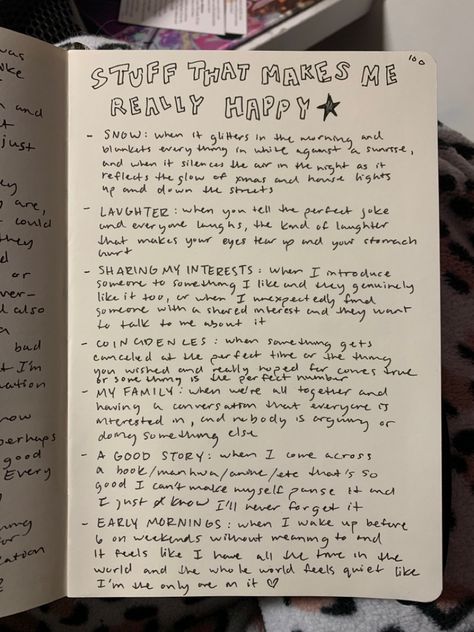 was
oke
and
just
they
are,
could
they
or
ver-
d also
a
bad
t I'm
uation
now
perhaps
good
Every
100
STUFF THAT MAKES ME
REALLY HAPPY ★
- SNOW: when it glitters in the morning and
blankets everything in white against a sunrise,
and when it silences the air in the night as it
reflects the glow of xmas and house lights
up and down the streets
- LAUGHTER: when you tell the perfect joke
and everyone laughs, the kind of laughter
that makes your eyes tear up and your stomach
hurt
- SHARING MY INTERESTS: when I introduce
someone to something I like and they genuinely
like it too, or when I unexpectedly find
someone with a shared interest and they want
to talk to me about it
- COINCIDENCES: when something gets
canceled at the perfect time or the thing
you wished and really hoped for comes true
or something is the perfect number
- MY FAMILY: when we're all together and
having a conversation that everyone is
interested in, and nobody is arguing or
doing something else
- A GOOD STORY: when I come across
a book/manhwa/anime/etc that's so
good I can't make myself pause it and
I just know I'll never forget it
- EARLY MORNINGS: when I wake up before
6 on weekends without meaning to and
it feels like I have all the time in the
world and the whole world feels quiet like
I'm the only one on it ♡